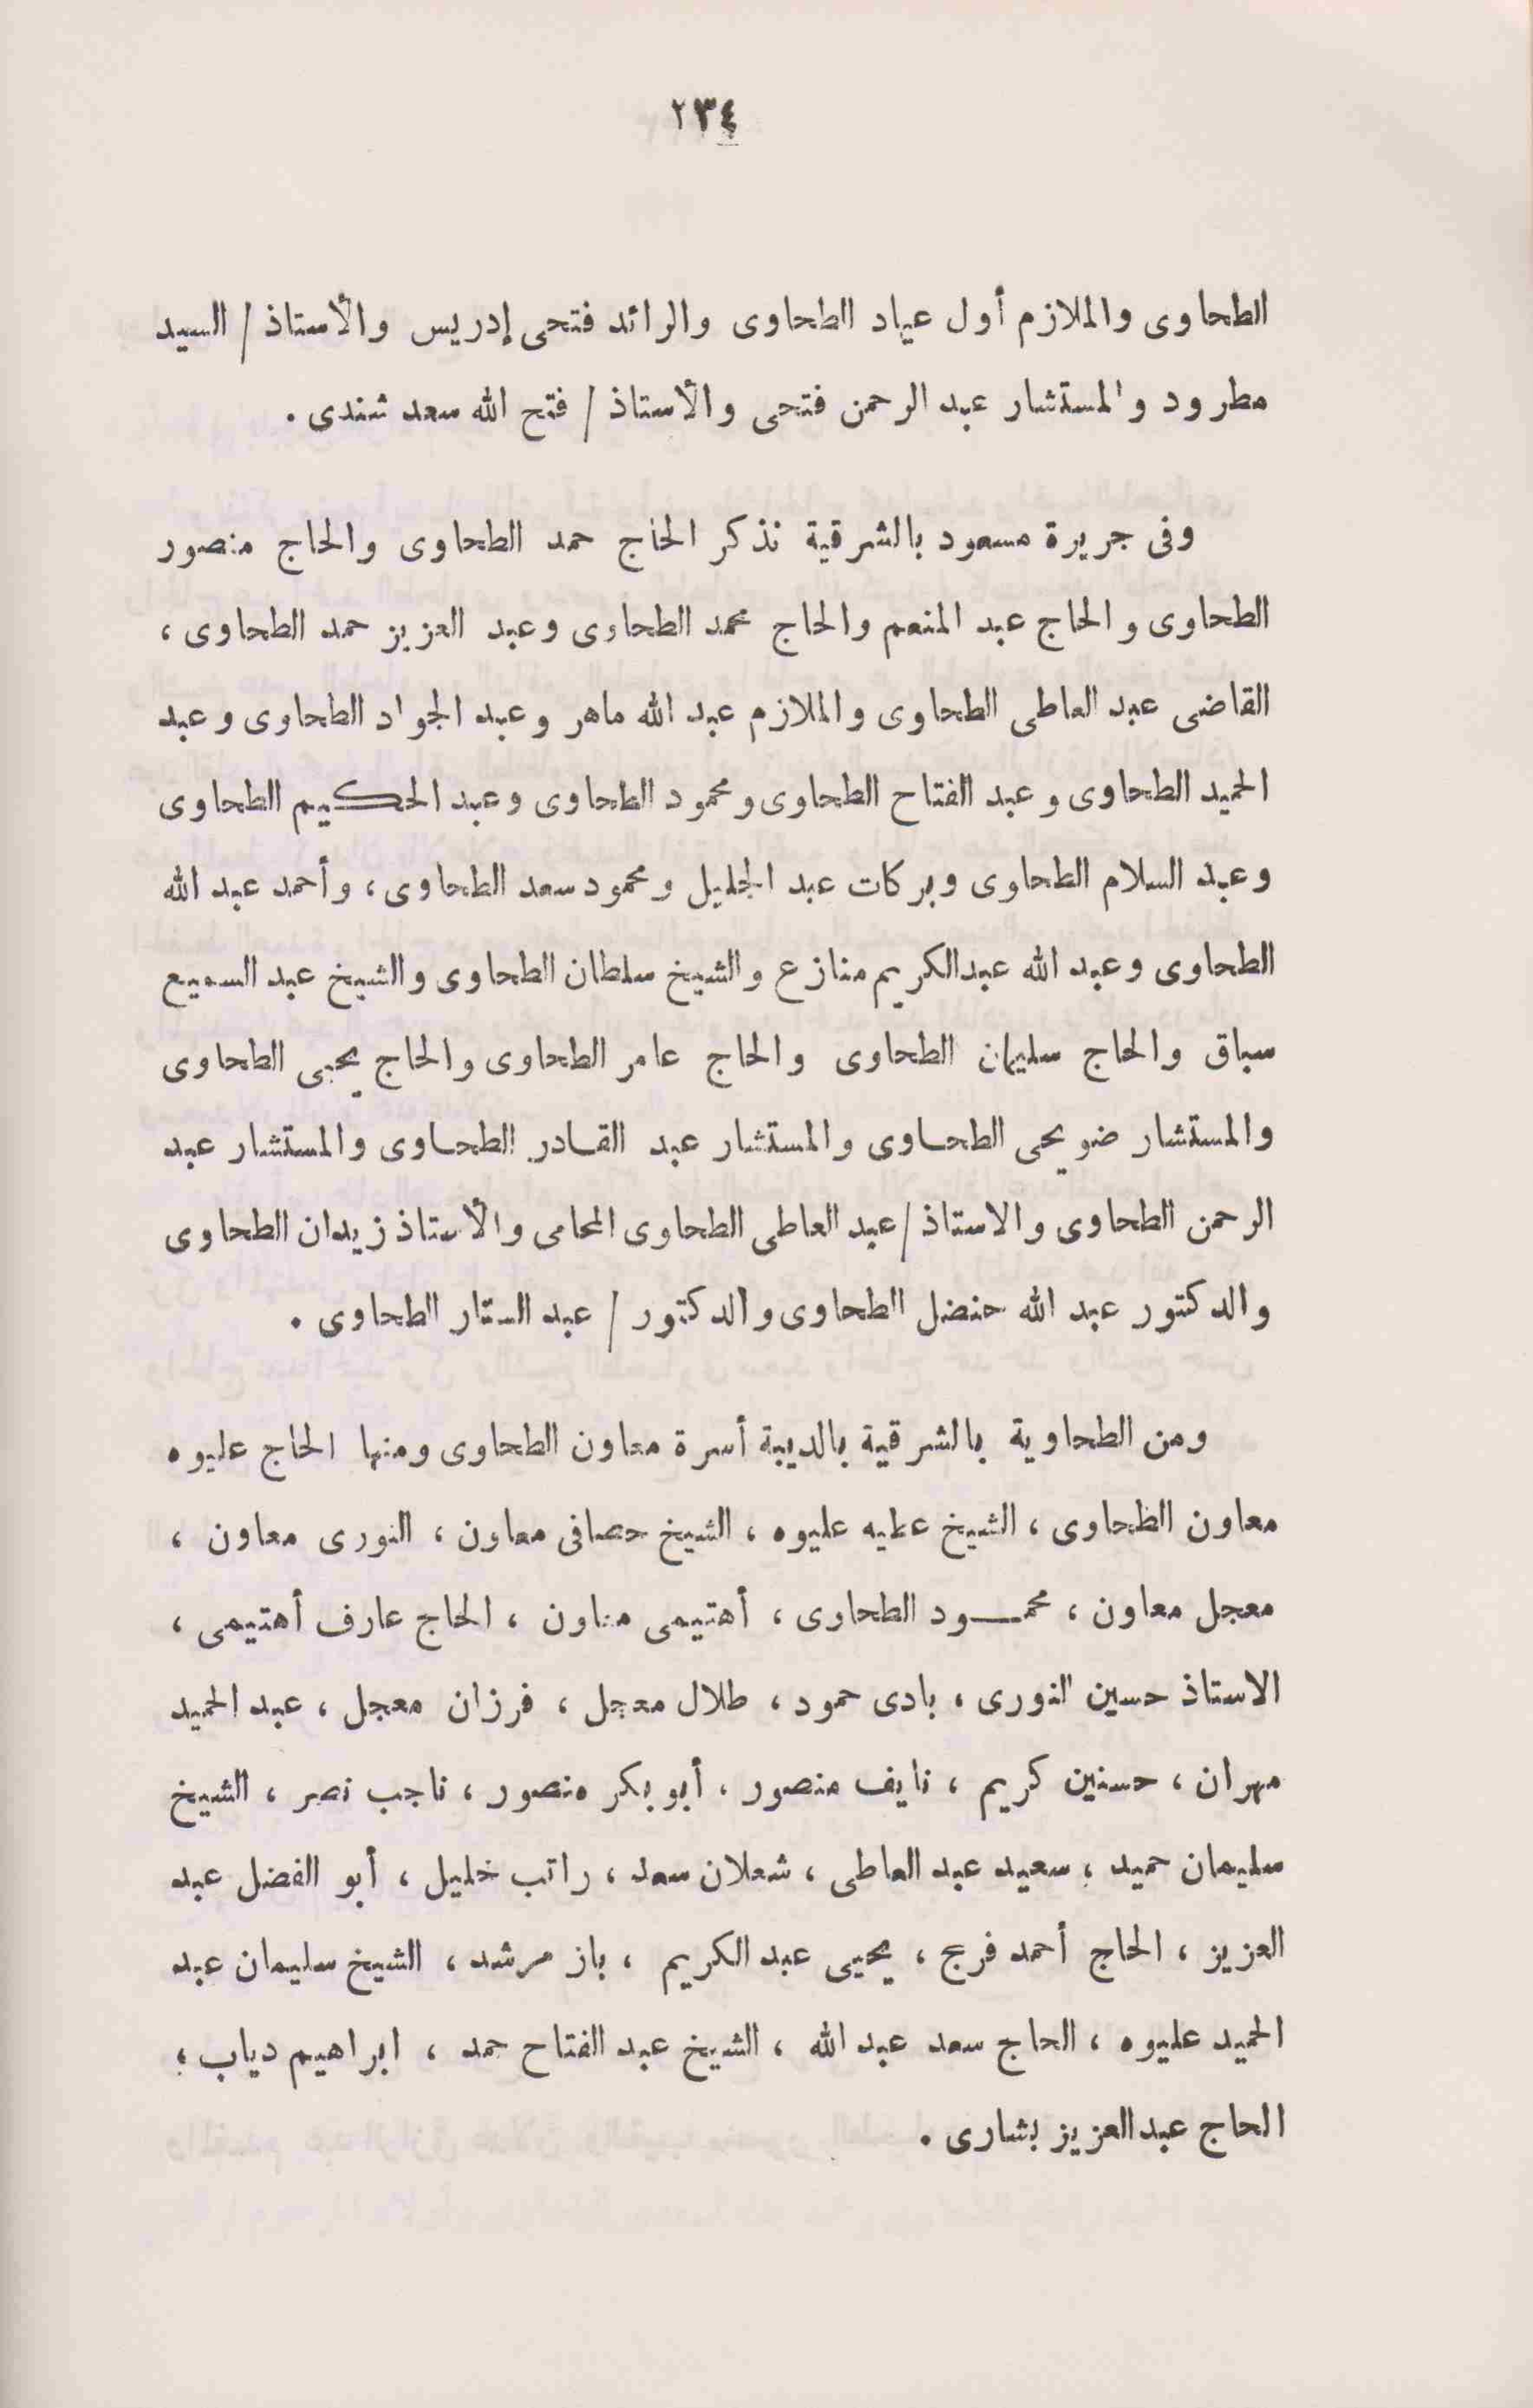 ٢٣٤
الطحاوى والملازم أول عياد الطحاوى والرائد فتحى إدريس والأستاذ / السيد
مطرود والمستشار عبد الرحمن فتحى والأستاذ / فتح الله سعد شندى .
وفى جريرة مسعود بالشرقية نذكر الحاج حمد الطحاوى والحاج منصور
الطحاوى والحاج عبد المنعم والحاج محمد الطحاوى وعبد العزيز حمد الطحاوى ،
القاضى عبد العاطى الطحاوى والملازم عبد الله ماهر وعبد الجواد الطحاوى وعبد
الحميد الطحاوى وعبد الفتاح الطحاوى ومحمود الطحاوى وعبد الحكيم الطحاوى
وعبد السلام الطحاوى وبركات عبد الجليل ومحمود سعد الطحاوى ، وأحمد عبد الله
الطحاوى وعبد الله عبدالكريم منازع والشيخ سلطان الطحاوى والشيخ عبد السميع
سباق والحاج سليمان الطحاوى والحاج عامر الطحاوى والحاج يحيى الطحاوى
والمستشار ضويحى الطحاوى والمستشار عبد القادر الطحاوى والمستشار عبد
الرحمن الطحاوى والاستاذ / عبد العاطى الطحاوى المحامى والأستاذ زيدان الطحاوى
والدكتور عبد الله حنضل الطحاوى والدكتور / عبد الستار الطحاوى .
ومن الطحاوية بالشرقية بالديبة أسرة معاون الطحاوى ومنها الحاج عليوه
معاون الطحاوى ، الشيخ عطيه عليوه ، الشيخ حصافى معاون ، النورى معاون ،
معجل معاون ، محمـــود الطحاوى ، أهتيمى معاون ، الحاج عارف أهتيمى ،
الاستاذ حسين النورى ، بادى حمود ، طلال معجل ، فرزان معجل ، عبد الحميد
مهران ، حسنين كريم ، نايف منصور ، أبو بكر منصور ، ناجب نصر ، الشيخ
سليمان حميد ، سعيد عبد العاطى ، شعلان سعد ، راتب خليل ، أبو الفضل عبد
العزيز ، الحاج أحمد فرج ، يحيى عبد الكريم ، باز مرشد ، الشيخ سليمان عبد
الحميد عليوه ، الحاج سعد عبد الله ، الشيخ عبد الفتاح حمد ، ابراهيم دياب ،
الحاج عبدالعزيز بشارى .